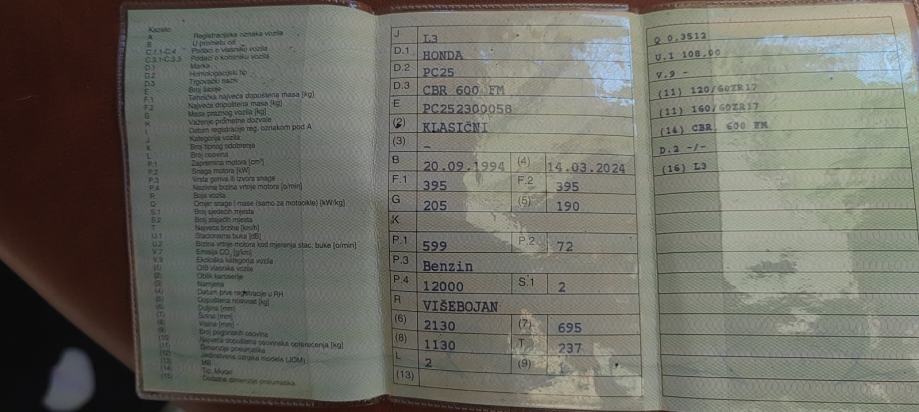 Kazalo:
A Registracijska oznaka vozila
B U prometu od
C.1.1-C.4 Podaci o vlasniku vozila
C.3.1-C.3.3 Podaci o korisniku vozila
D.1 Marka
D.2 Homologacijski tip
D.3 Trgovački naziv
E Broj šasije
F.1 Tehnička najveća dopuštena masa [kg]
F.2 Najveća dopuštena masa [kg]
G Masa praznog vozila [kg]
H Važenje prometne dozvole
I Datum registracije reg. oznakom pod A
J Kategorija vozila
K Broj tipnog odobrenja
L Broj osovina
P.1 Zapremina motora [cm³]
P.2 Snaga motora [kW]
P.3 Vrsta goriva ili izvora snage
P.4 Nazivna brzina vrtnje motora [o/min]
R Boja vozila
Q Omjer snage i mase (samo za motocikle) [kW/kg]
S.1 Broj sjedećih mjesta
S.2 Broj stajaćih mjesta
T Najveća brzina [km/h]
U.1 Stacionarna buka [dB]
U.2 Brzina vrtnje motora kod mjerenja stac. buke [o/min]
V.7 Emisija CO₂ [g/km]
V.9 Ekološka kategorija vozila
(1) OIB vlasnika vozila
(2) Oblik karoserije
(3) Namjena
(4) Datum prve registracije u RH
(5) Dopuštena nosivost [kg]
(6) Duljina [mm]
(7) Širina [mm]
(8) Visina [mm]
(9) Broj pogonskih osovina
(10) Najveća dopuštena osovinska opterećenja [kg]
(11) Dimenzije pneumatika
(12) Jedinstvena oznaka modela (JOM)
(13) MB
(14) Tip, Model
(15) Dodatne dimenzije pneumatika
J L3
D.1 HONDA
D.2 PC25
D.3 CBR 600 FM
E PC252300058
(2) KLASIČNI
(3) –
B 20.09.1994 (4) 14.03.2024
F.1 395 F.2 395
G 205 (5) 190
K
P.1 599 P.2 72
P.3 Benzin
P.4 12000 S.1 2
R VIŠEBOJAN
(6) 2130 (7) 695
(8) 1130 T 237
L 2 (9) 1
(13)
Q 0.3512
U.1 108,00
V.9 -
(11) 120/60ZR17
(11) 160/60ZR17
(14) CBR 600 FM
D.2 -/-
(16) L3